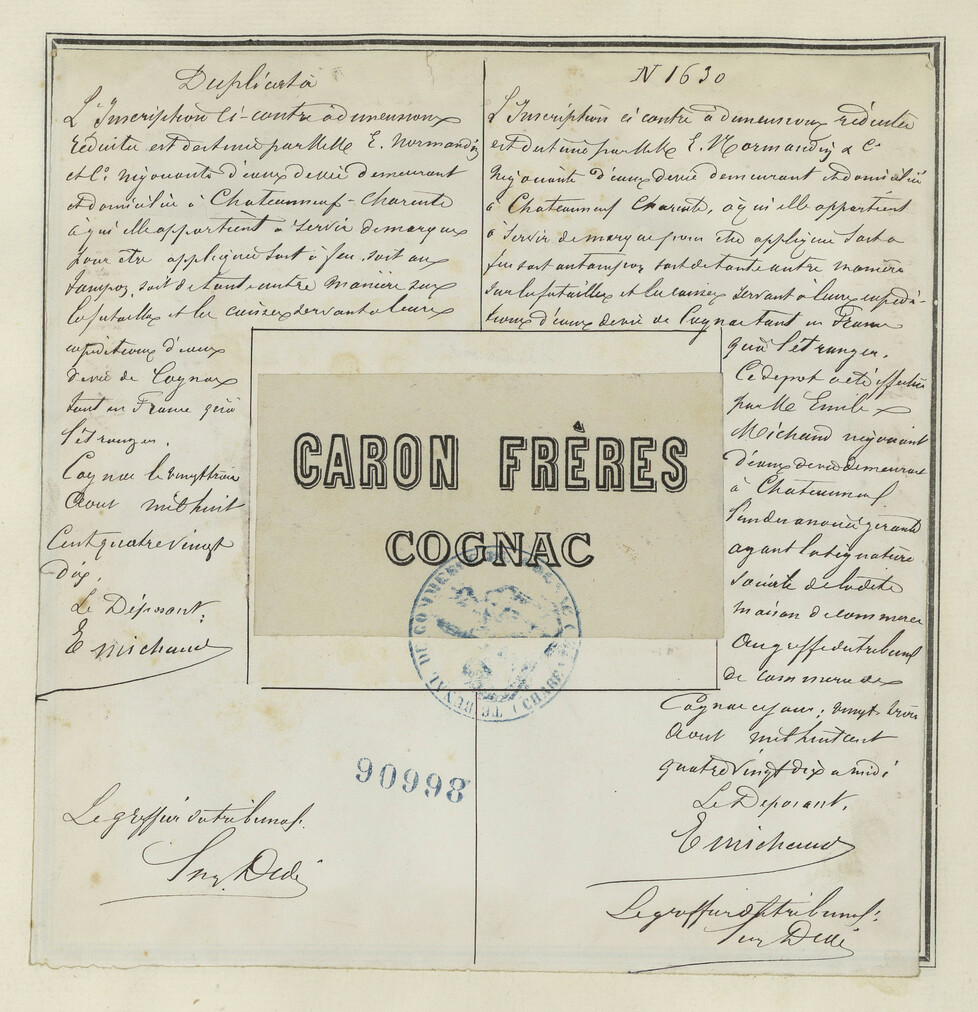 Duplicata
L'Inscription ci-contre à dimensions
réduites est destinée par MMs E. Normandin
et Cie négociants d'eaux de vie demeurant
et domiciliés à Chateauneuf-Charente
à qui elle appartient à servir de marque
pour être appliquée soit à feu, soit au
tampon, soit de toute autre manière sur
les futailles et les caisses servant à leurs
expéditions d'eaux
de vie de Cognac
tant en France qu'à
l'étranger.
Cognac le vingt trois
Aout mil huit
Cent quatre vingt
dix.
Le Déposant.
E Michaud
Le greffier du tribunal.
Dedé
N 1630
L'Inscription ci contre à dimensions réduites
est destinée par MMs E. Normandin & Ce
négociants d'eaux de vie demeurant et domiciliés
à Chateauneuf Charente, à qui elle appartient
à servir de marque pour être appliquée soit à
feu soit au tampon soit de toute autre manière
sur les futailles et les caisses servant à leurs expédi-
tions d'eaux de vie de Cognac tant en France
qu'à l'étranger.
Ce depot a été effectué
par Mr Emile
Michaud négociant
d'eaux de vie demeurant
à Chateauneuf
l'un des associés gérants
ayant la signature
sociale de la dite
maison de commerce
Au greffe du tribunal
de commerce de
Cognac ce jour; vingt trois
Aout mil huit cent
quatre vingt dix à midi
Le Deposant.
E Michaud
Le greffier du tribunal:
Dedé
CARON FRÈRES
COGNAC
TRIBUNAL DE COMMERCE (CHARENTE)
90998